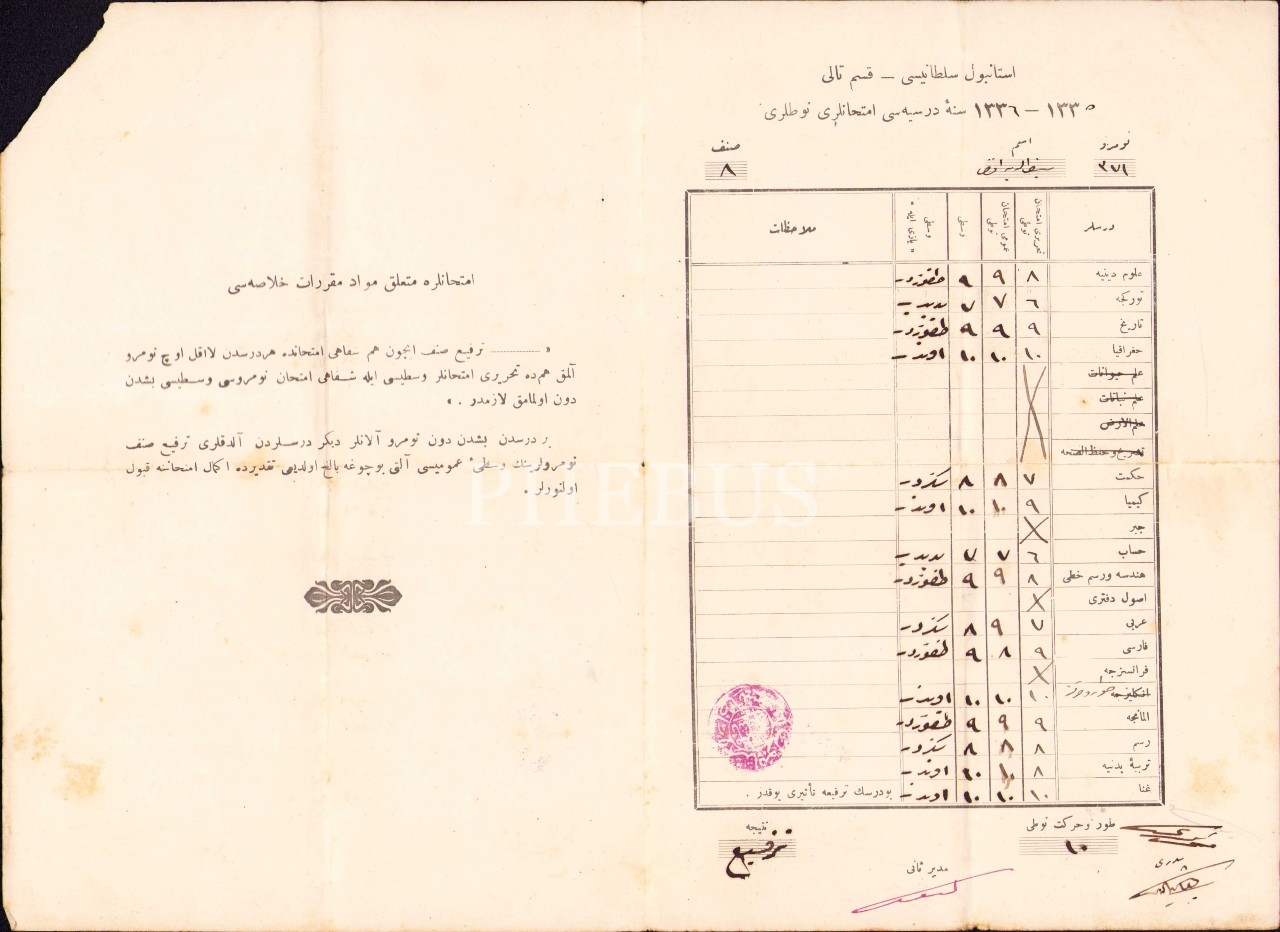 استانبول سلطانیسی – قسم تالی
١٣٣٥ – ١٣٣٦ سنۀ درسیه‌سی امتحانلری نوطلری
نومرو اسم صنف
٣٧١ ٨
درسلر تحریری امتحان نوطی عمومی امتحان نوطی وسطی وسطی « یازی ایله » ملاحظات
علوم دینیه ٨ ٩ ٩ طقوزدر
تورکجه ٦ ٧ ٧ یدیدر
تاریخ ٩ ٩ ٩ طقوزدر
جغرافیا ١٠ ١٠ ١٠ اوندر
علم حیوانات
علم نباتات
علم الارض
تشریح و حفظ الصحه
حکمت ٧ ٨ ٨ سکزدر
کیمیا ٩ ١٠ ١٠ اوندر
جبر
حساب ٦ ٧ ٧ یدیدر
هندسه و رسم خطی ٨ ٩ ٩ طقوزدر
اصول دفتری
عربی ٧ ٩ ٨ سکزدر
فارسی ٩ ٨ ٩ طقوزدر
فرانسزجه
انکلیزجه ١٠ ١٠ ١٠ اوندر
المانجه ٩ ٩ ٩ طقوزدر
رسم ٨ ٨ ٨ سکزدر
تربیۀ بدنیه ٨ ١٠ ١٠ اوندر
غنا ١٠ ١٠ ١٠ اوندر بودرسك ترفیعه تأثیری یوقدر .
طور و حرکت نوطی نتیجه
١٠ ترفیع
پدری
مدیر ثانی
امتحانلره متعلق مواد مقررات خلاصه‌سی
« ــــــ ترفیع صنف ایچون هم شفاهی امتحانده هر درسدن لااقل اوچ نومرو
آلمق هم‌ده تحریری امتحانلر وسطیسی ایله شفاهی امتحان نومروسی وسطیسی بشدن
دون اولمامق لازمدر . »
بر درسدن بشدن دون نومرو آلانلر دیکر درسلردن آلدقلری ترفیع صنف
نومرولرینك وسطئ عمومیسی آلتی بوچوغه بالغ اولدیغی تقدیرده اکمال امتحاننه قبول
اولنورلر .
PHEBUS